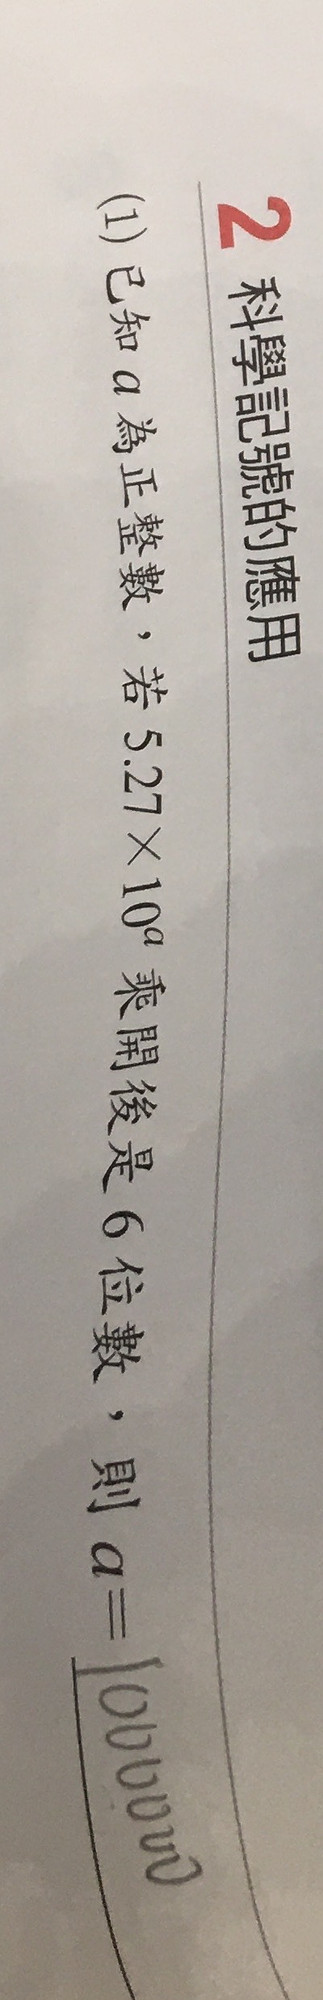 2 科學記號的應用
(1) 已知 a 為正整數，若 5.27×10ᵃ 乘開後是 6 位數，則 a=1000000